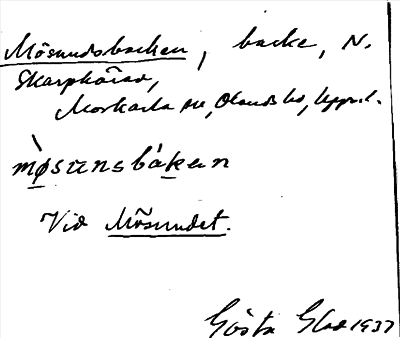 Mösundsbacken, backe, N.
Skarphärad,
Morkarla sn, Olands hd, Uppl.
mø̀sunsbákan
Vid Mösundet.
Gösta 1937